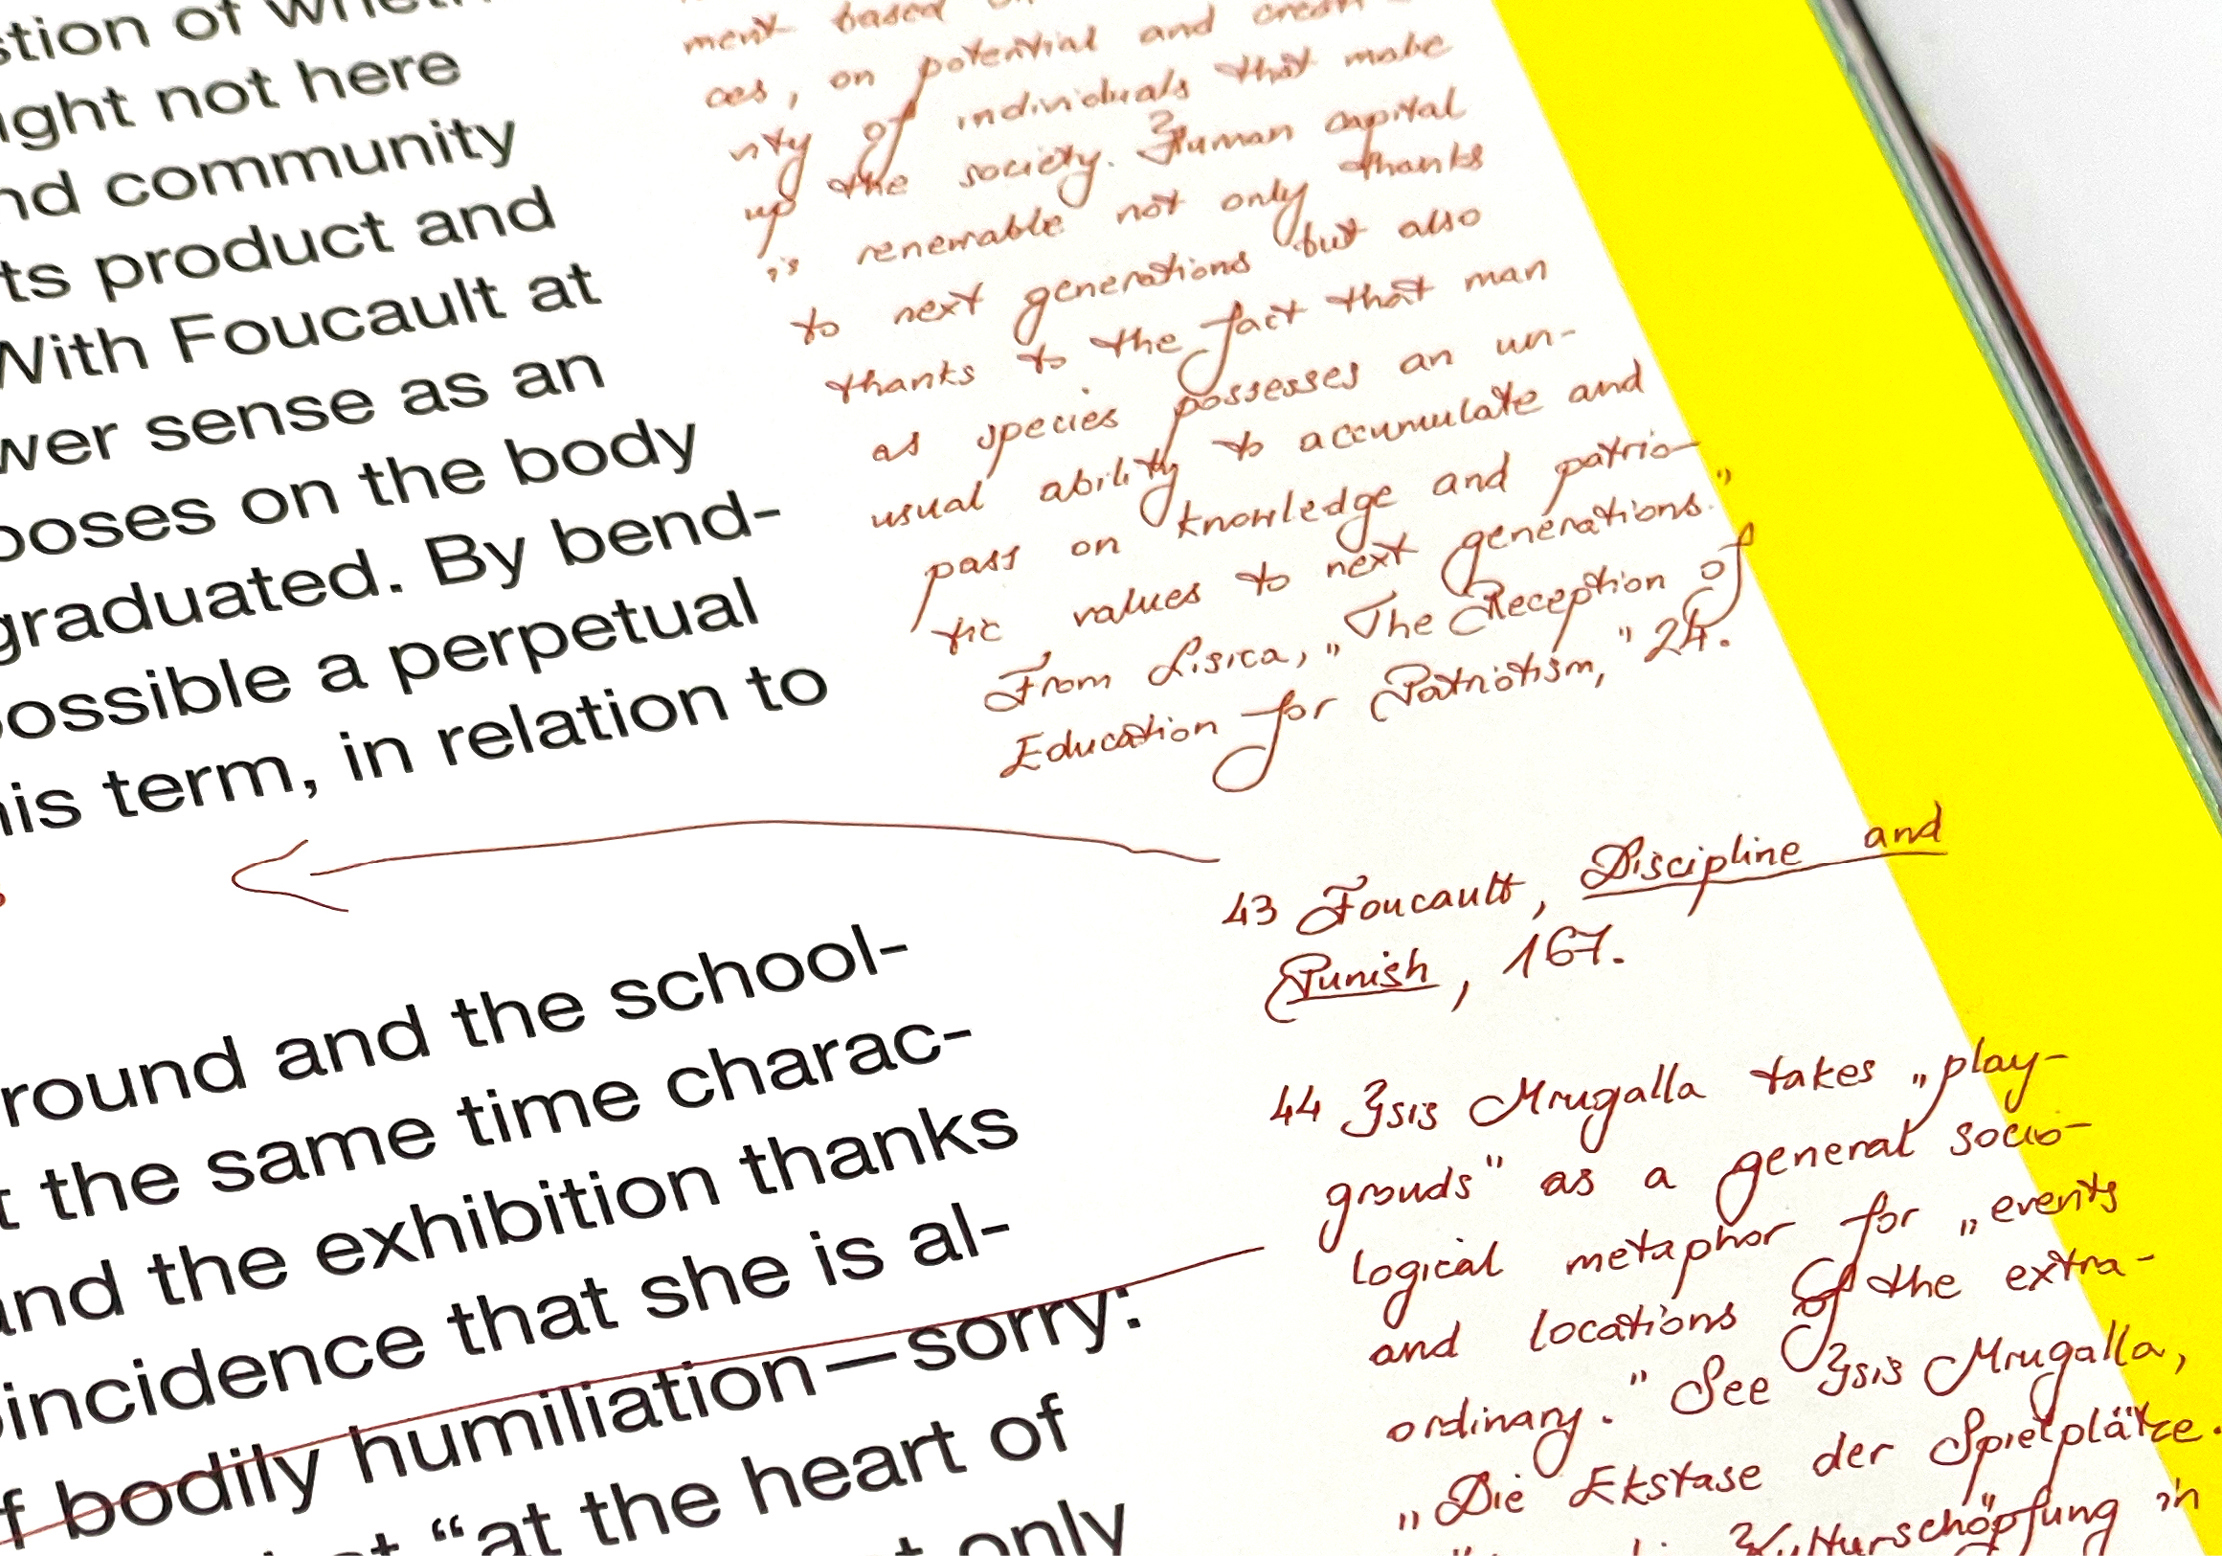 stion of
ight not here
nd community
ts product and
With Foucault at
wer sense as an
poses on the body
graduated. By bend-
possible a perpetual
his term, in relation to
round and the school-
t the same time charac-
and the exhibition thanks
incidence that she is al-
f bodily humiliation—sorry:
“at the heart of
only
ment based
ces, on potential and creati-
vity of individuals that make
up the society. Human capital
is renewable not only thanks
to next generations but also
thanks to the fact that man
as species possesses an un-
usual ability to accumulate and
pass on knowledge and patrio-
tic values to next generations.”
From Lisica, „The Reception of
Education for Patriotism,” 24.
43 Foucault, Discipline and
Punish, 167.
44 Ysis Mrugalla takes „play-
grouds” as a general socio-
logical metaphor for „events
and locations of the extra-
ordinary.” See Ysis Mrugalla,
„Die Ekstase der Spielplätze.
Kulturschöpfung in